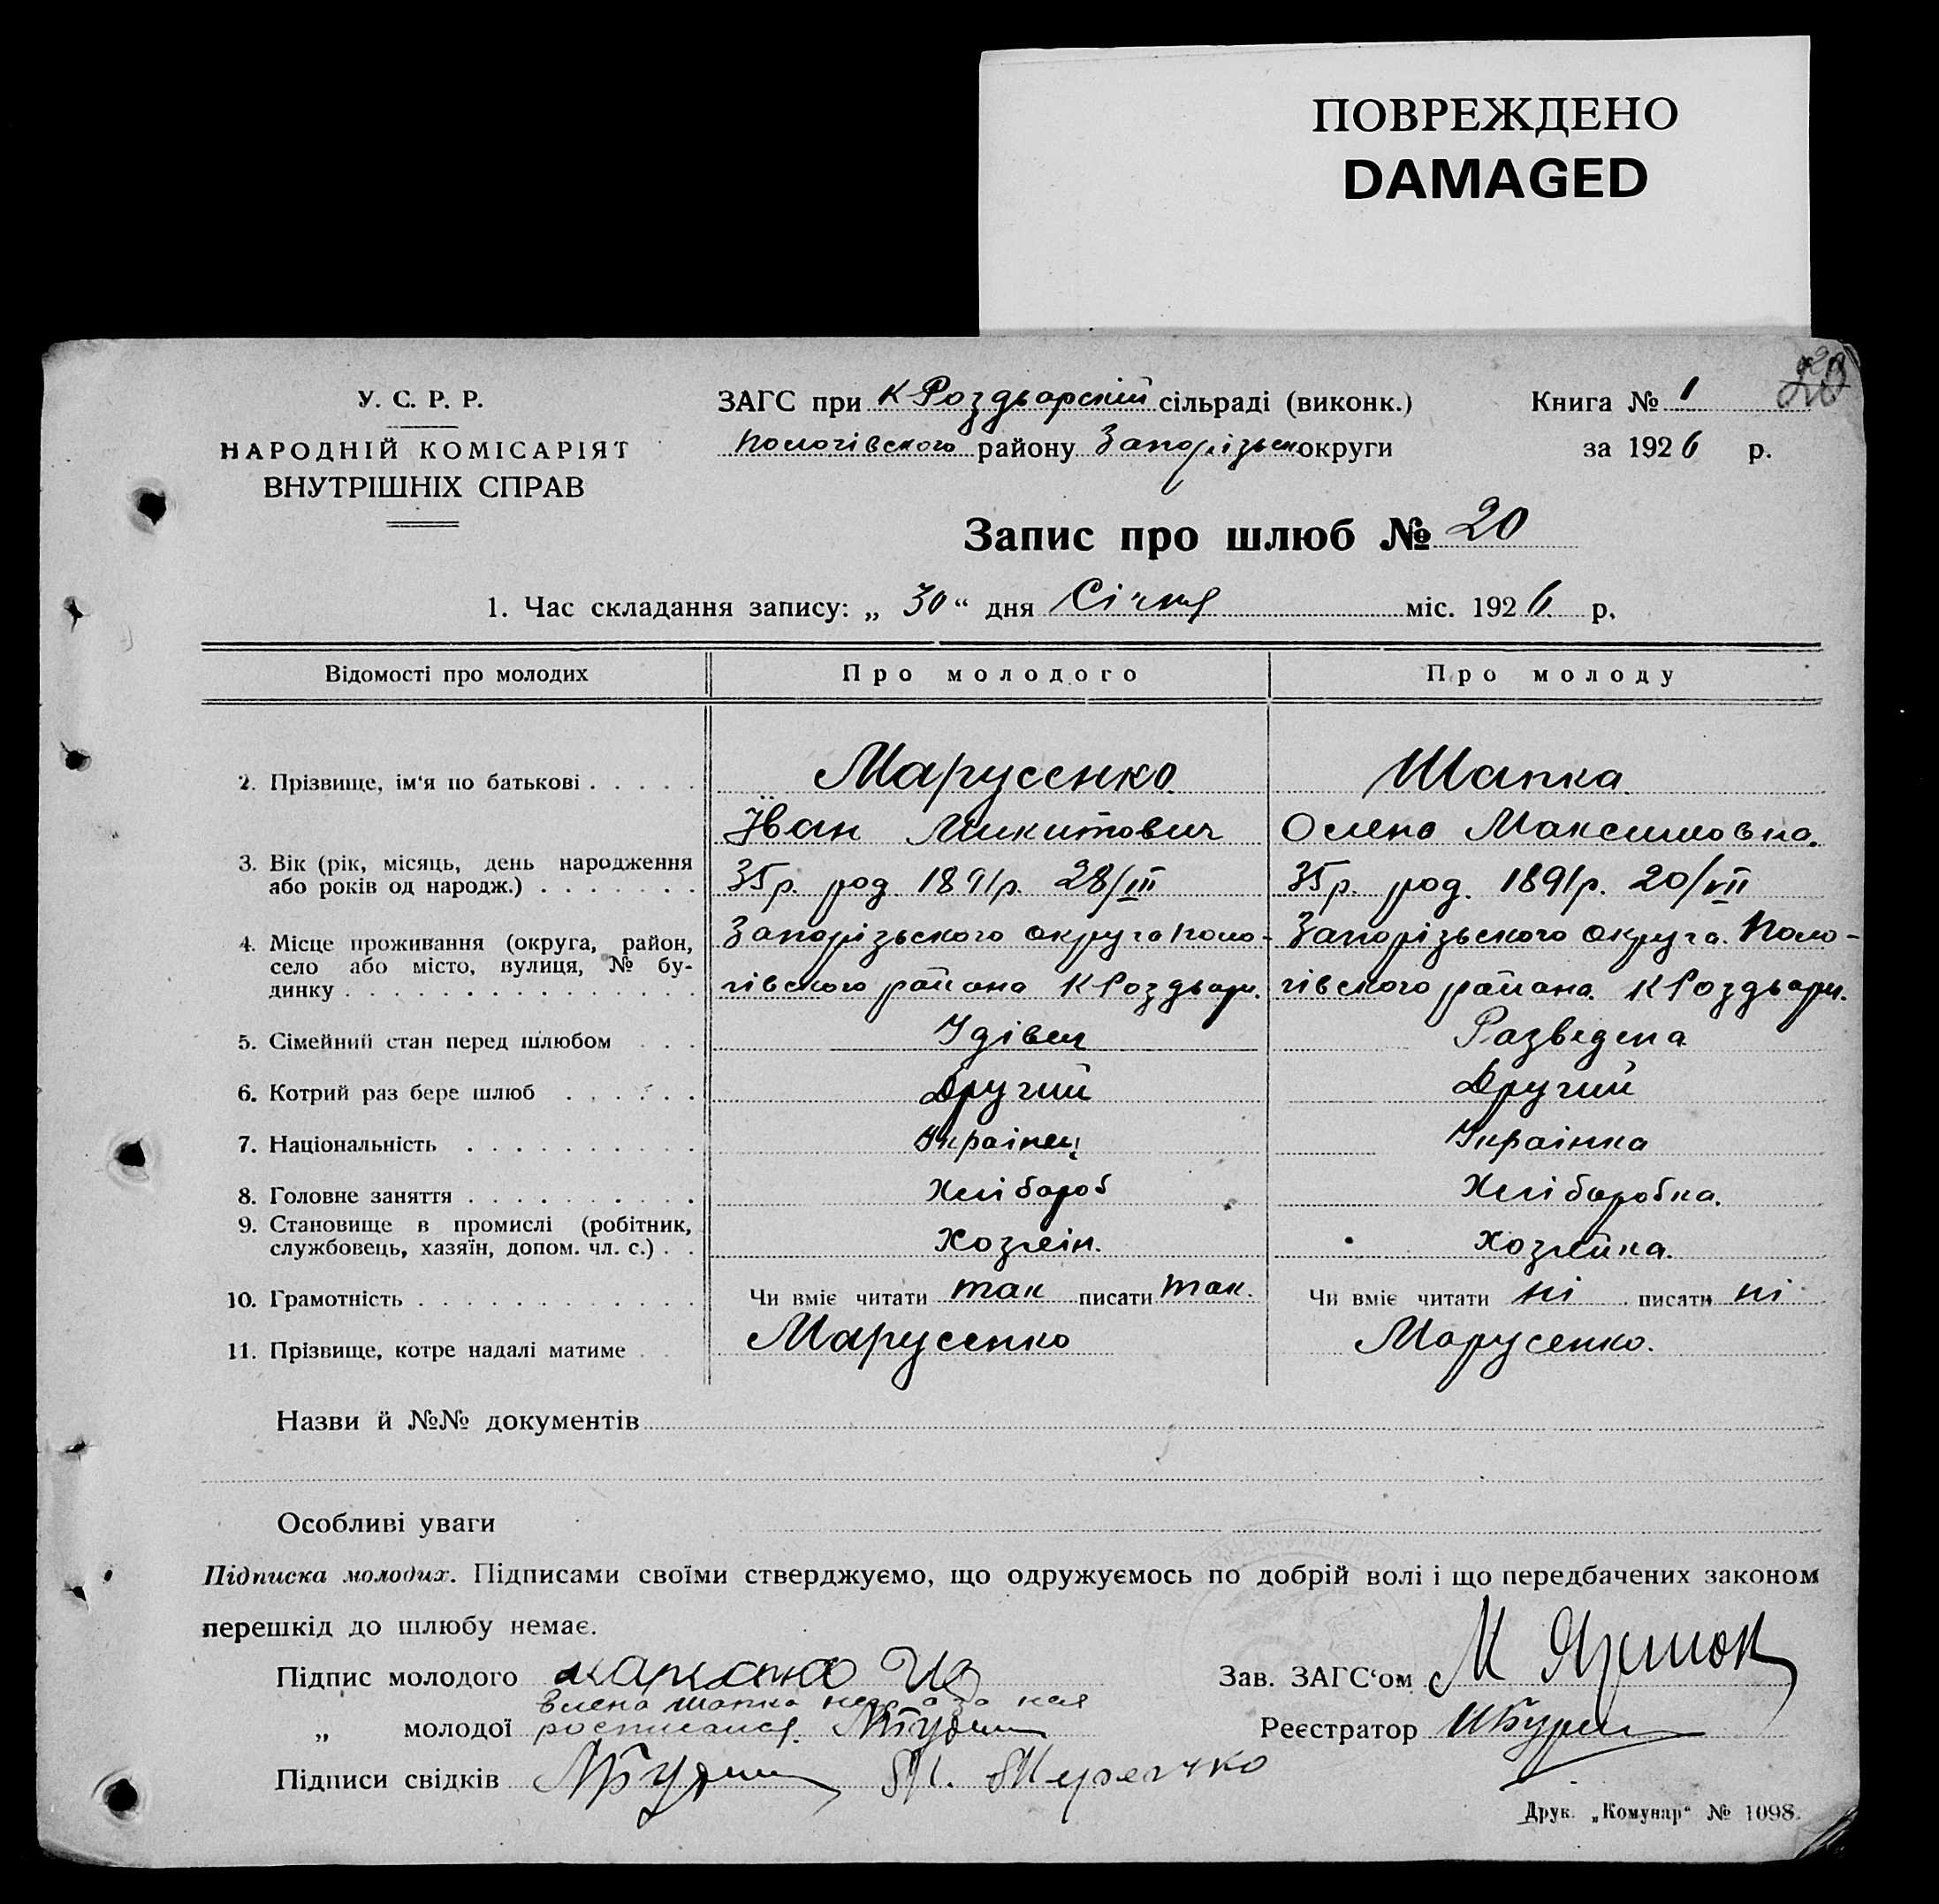 ПОВРЕЖДЕНО
DAMAGED
20
У. С. Р. Р.
НАРОДНІЙ КОМІСАРІЯТ
ВНУТРІШНІХ СПРАВ
ЗАГС при К Роздьорскій сільраді (виконк.)
Пологівского району Запорізьк округи
Книга № 1
за 1926 р.
Запис про шлюб № 20
1. Час складання запису: „ 30 “ дня Січня міс. 1926 р.
Відомості про молодих Про молодого Про молоду
2. Прізвище, ім‘я по батькові . . . . . Марусенко Шапка
Іван Микитович Олена Максимовна.
3. Вік (рік, місяць, день народження
або років од народж.) . . . . . . . 35р. род 1891р. 28/III 35р. род. 1891р. 20/VII
4. Місце проживання (округа, район, Запорізьского округа Поло- Запорізьского округа. Поло-
село або місто, вулиця, № бу-
динку . . . . . . . . . . . . . . . гівского района К Роздьори. гівского района. К Роздьори.
5. Сімейний стан перед шлюбом . . . Удівец Разведена
6. Котрий раз бере шлюб . . . . . . Другий Другий
7. Національність . . . . . . . . . . Украінец Украінка
8. Головне заняття . . . . . . . . . . Хлібороб Хліборобка.
9. Становище в промислі (робітник,
службовець, хазяїн, допом. чл. с.) . . Хозяін. Хозяйка.
10. Грамотність . . . . . . . . . . . . Чи вміє читати так писати так. Чи вміє читати ні писати ні
11. Прізвище, котре надалі матиме . . Марусенко Марусенко.
Назви й №№ документів
Особливі уваги
Підписка молодих. Підписами своїми стверджуємо, що одружуємось по добрій волі і що передбачених законом
перешкід до шлюбу немає.
Підпис молодого
Зав. ЗАГС‘ом М
Шапка
„ молодої
Реєстратор
Підписи свідків
Друк. „Комунар“ № 1098.